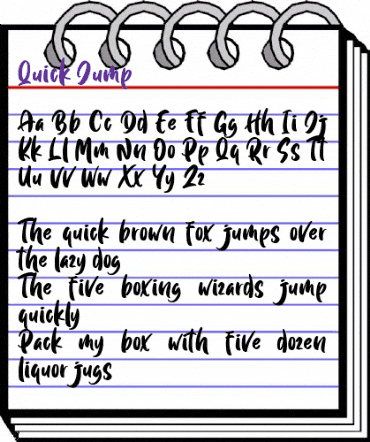 Quick Jump
Aa Bb Cc Dd Ee Ff Gg Hh Ii Jj
Kk Ll Mm Nn Oo Pp Qq Rr Ss Tt
Uu Vv Ww Xx Yy Zz
The quick brown fox jumps over
the lazy dog
The five boxing wizards jump
quickly
Pack my box with five dozen
liquor jugs